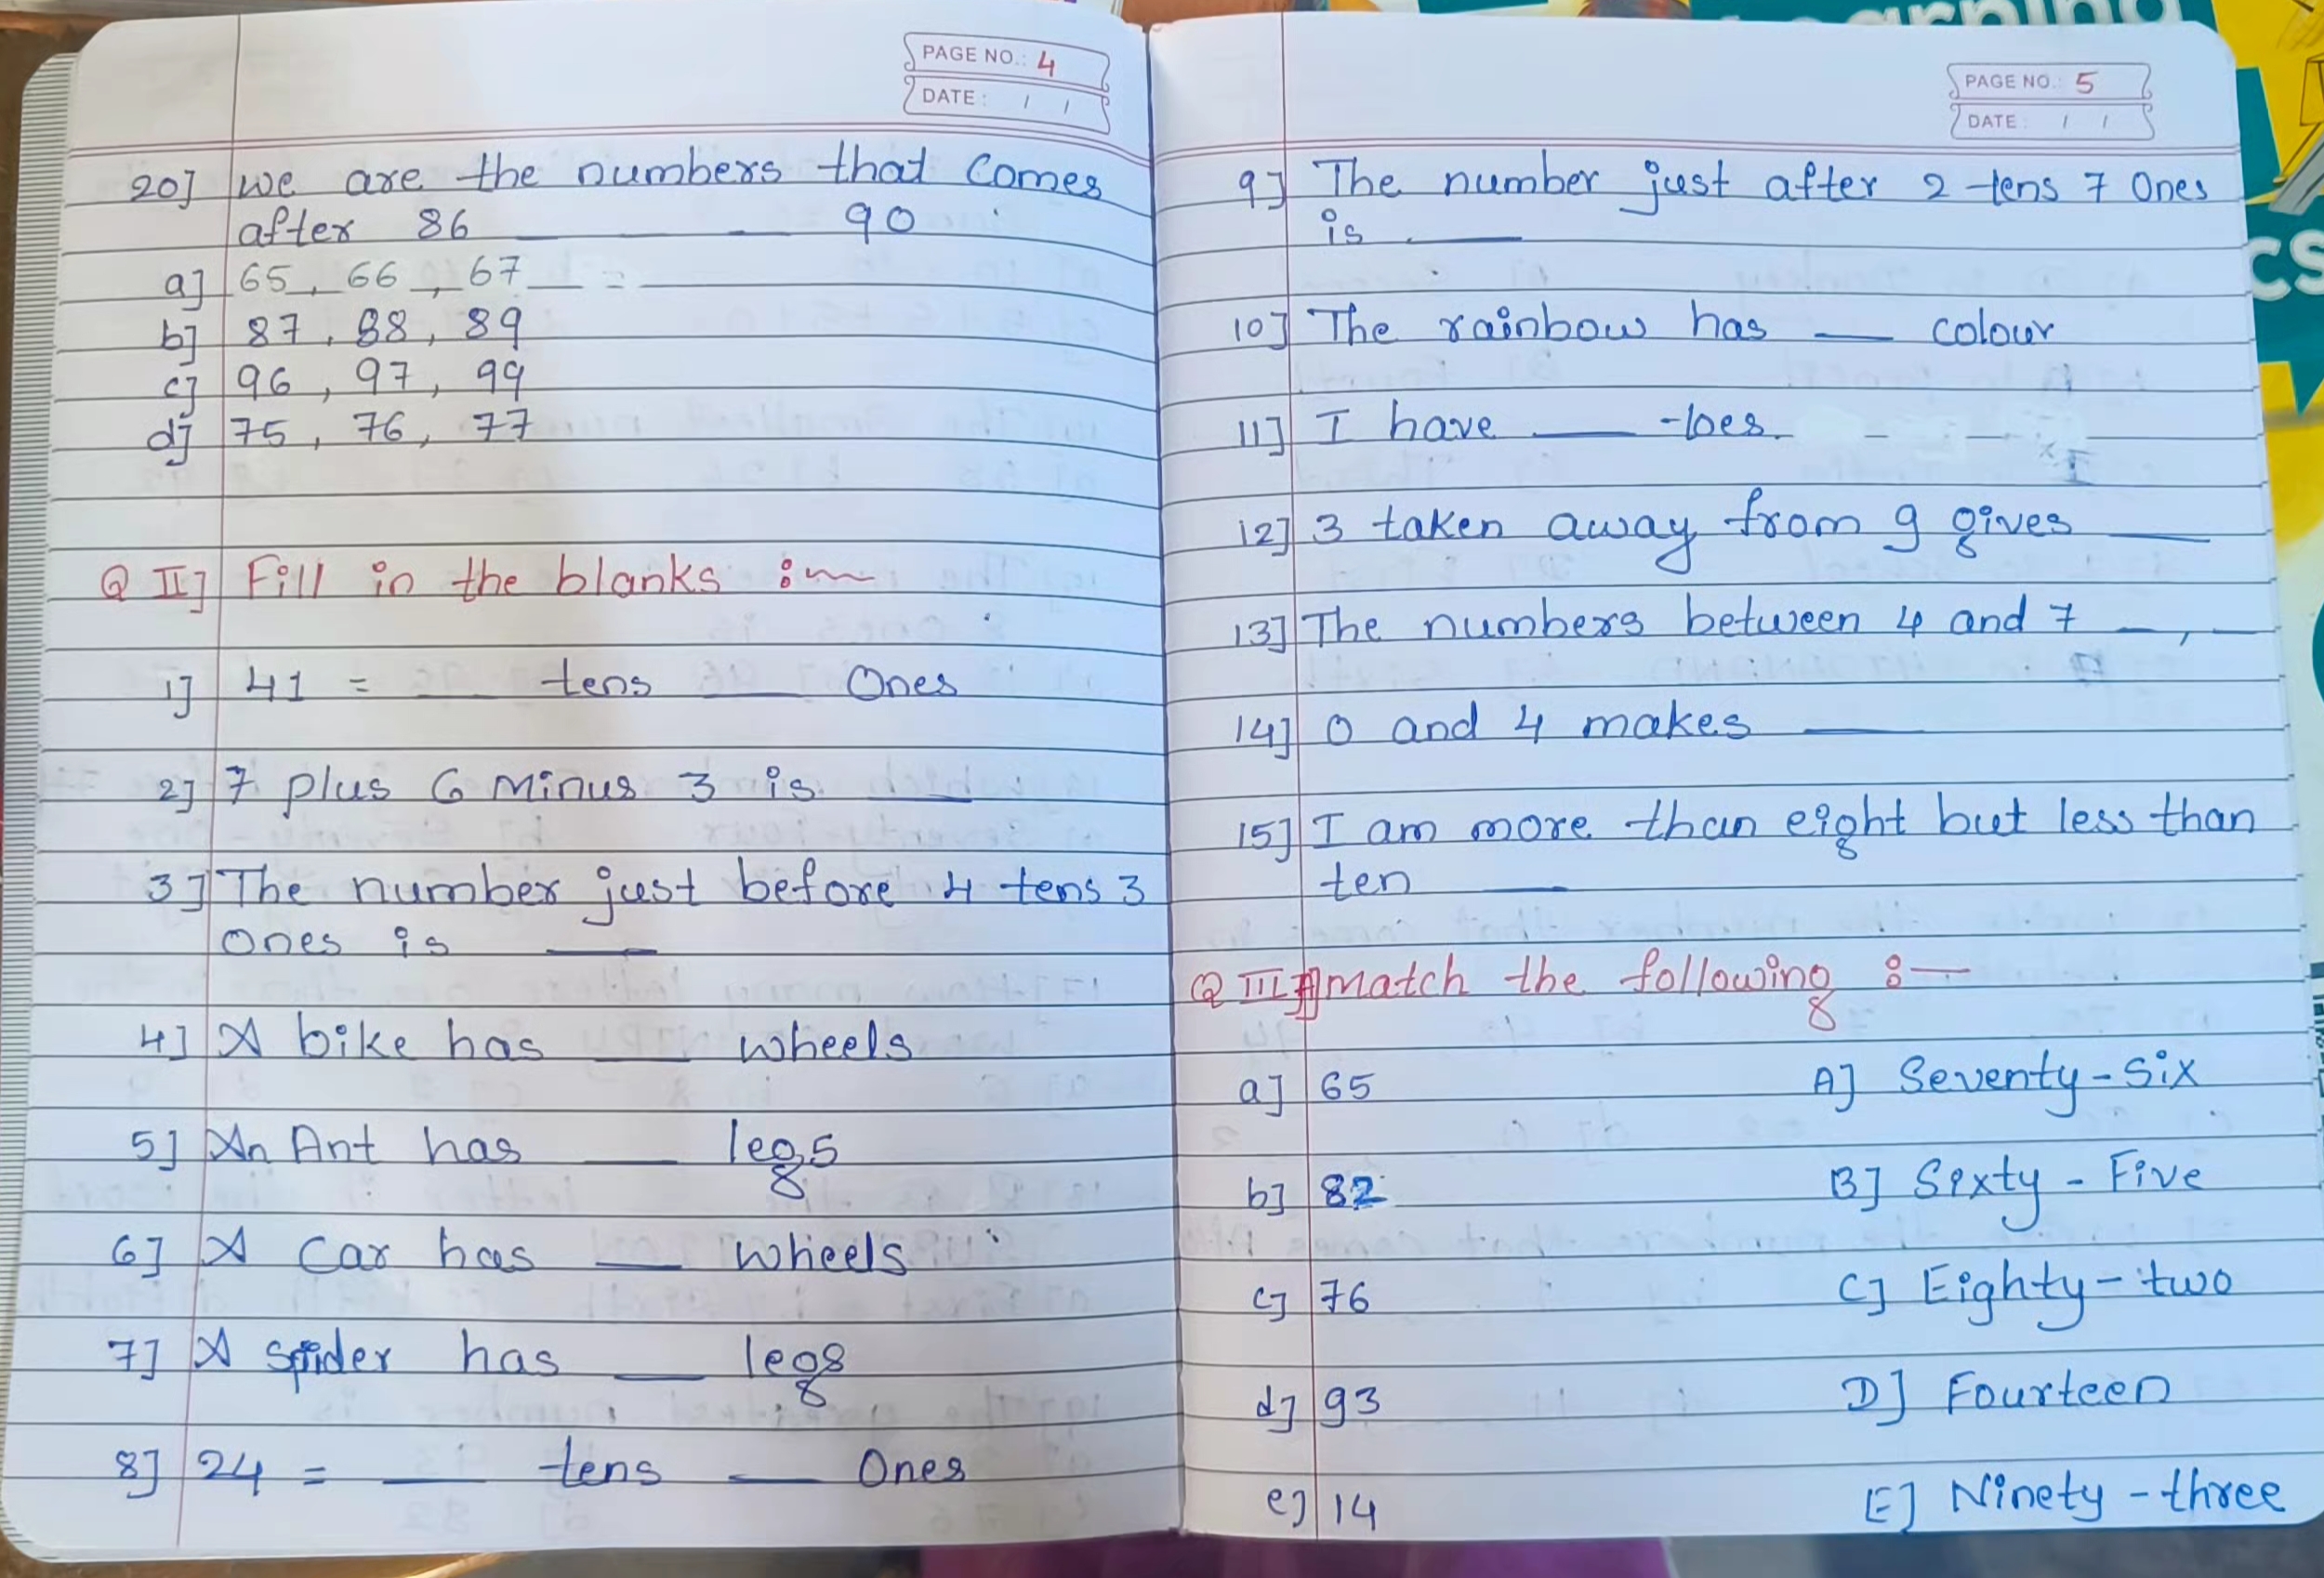 PAGE NO.: 4
DATE: / /
20] we are the numbers that comes
after 86 ___ ___ ___ 90
a] 65, 66, 67 =
b] 87, 88, 89
c] 96, 97, 99
d] 75, 76, 77
Q II] Fill in the blanks :~
1] 41 = ___ tens ___ Ones
2] 7 plus 6 Minus 3 is ___
3] The number just before 4 tens 3
ones is ___
4] A bike has ___ wheels
5] An Ant has ___ legs
6] A Car has ___ wheels
7] A spider has ___ legs
8] 24 = ___ tens ___ Ones
PAGE NO.: 5
DATE: / /
9] The number just after 2 tens 7 Ones
is ___
10] The rainbow has ___ colour
11] I have ___ toes.
12] 3 taken away from 9 gives ___
13] The numbers between 4 and 7 _, _
14] 0 and 4 makes ___
15] I am more than eight but less than
ten ___
Q III A] Match the following :—
a] 65 A] Seventy-Six
b] 82 B] Sixty-Five
c] 76 C] Eighty-two
d] 93 D] Fourteen
e] 14 E] Ninety-three